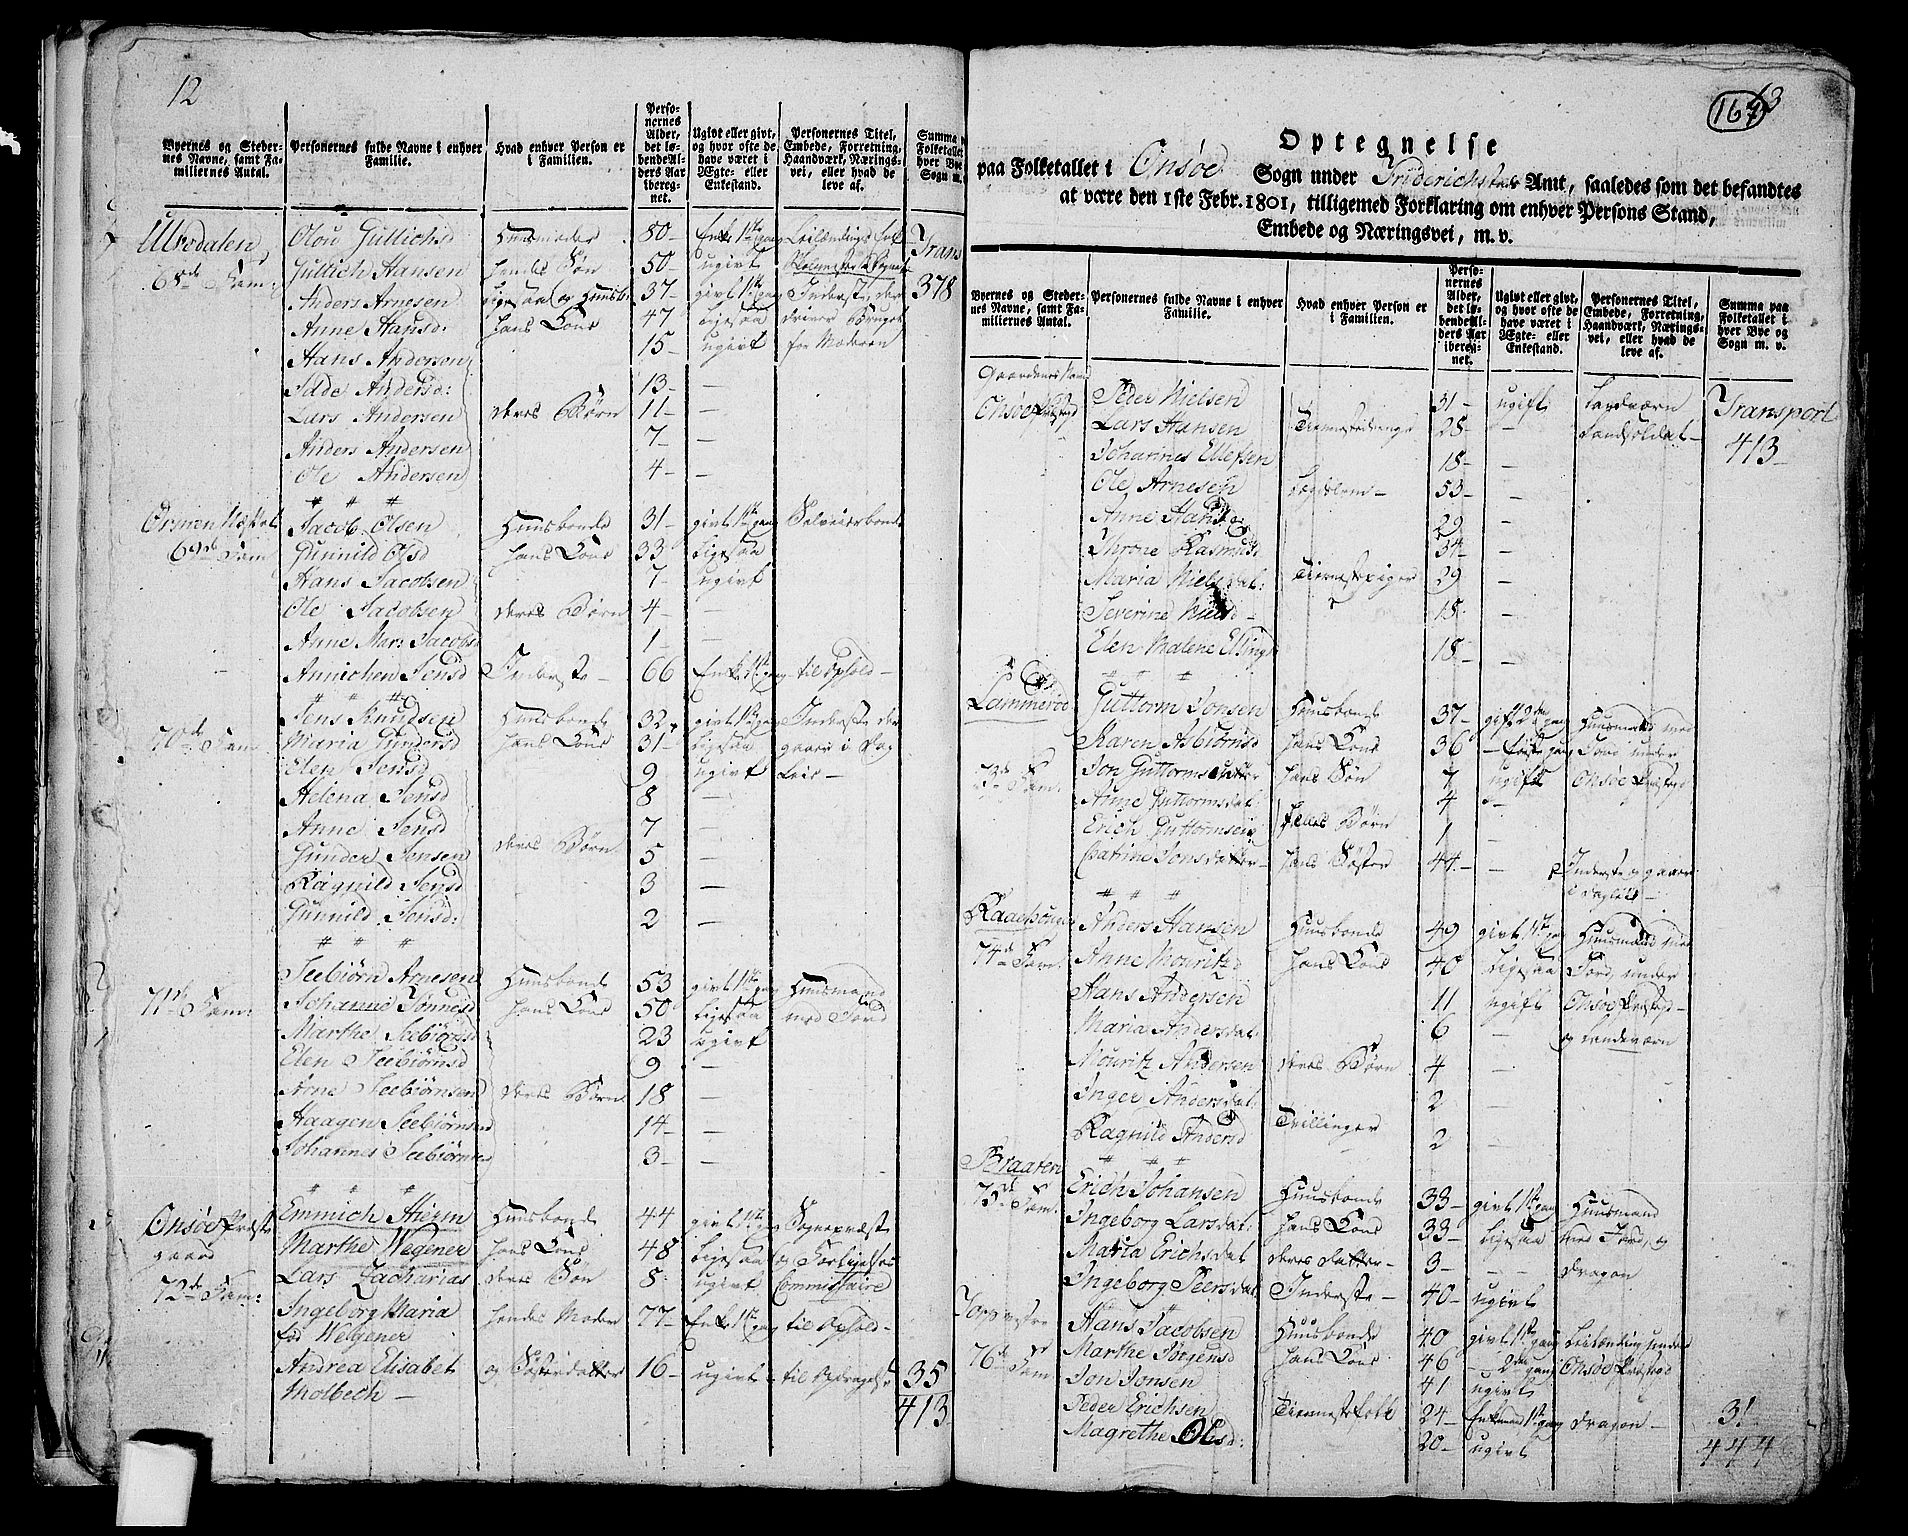 12
Byernes og Steder-
nes Navne, samt Fa-
miliernes Antal.
Personernes fulde Navne i enhver
Familie.
Hvad enhver Person er
i Familien.
Perso-
nernes
Alder,
det lø-
bende Al-
ders Aar
iberegn-
net.
Ugivt eller givt,
og hvor ofte de
have været i
Ægte- eller
Enkestand.
Personernes Titel,
Embede, Forretning,
Haandværk, Nærings-
vei, eller hvad de
leve af.
Summa
Folketallet
hver Bye
Sogn m.
Olou Gullichsd Huusmoder 80- Enke 1ste gang
68de Fam: Gullich Hansen hendes Søn 50- ugivt
Anders Arnesen 37- givt 1ste gang Inderste, der
Anne Hansd: hans Kone 47 ligesaa driver Bruget
Hans Andersen 15- ugivt for Moderen
Trans
378
Andersd: 13- —
Lars Andersen deres Børn 11- —
Anders Andersen 7- —
Ole Andersen 4- —
# # #
Jacob Olsen Huusbonde 31- givt 1ste gang Selveierbonde
69de Fam Gunnild Olsd hans Kone 33 ligesaa
Hans Jacobsen 7- ugivt
Ole Jacobsen deres Børn 4- —
Anne Mar: Jacobsd 1- —
Annichen Jensd Inderste- 66 Enke 1ste gang til Ophold-
# # #
Jens Knudsen Huusbonde 32, givt 1ste gang Inderste der
70de Fam Maria Gundersd hans Kone 31- ligesaa gaaer i Dag
Elen Jensd 9 ugivt Leie-
Helena Jensd 8 —
Anne Jensd 7 —
Gunder Jensen deres Børn 5 —
Ragnild Jensd 3 —
Gunnild Jensd: 2 —
# # #
Seebiørn Arnesen Huusbonde 53 givt 1ste gang Huusmand
71de Fam: Johanne hans Kone 50 ligesaa med Jord
Marthe Seebiørnsd 23 ugivt
Elen Seebiørnsd 9 —
Arne Seebiørnsen deres Børn 18 —
Haagen Seebiørnsen 14- —
Johannes Seebiørnsen 3- —
# # #
Onsøe Præste Emmich Huusbonde 44 givt 1ste gang Sognepræst
gaard Marthe Wegener hans Kone 48 ligesaa og Forligelses
Lars Zacharias deres Søn 8- ugivt Commissaire
72de Fam: Ingeborg Maria hendes Moder 77- Enke 1ste gang til Ophold-
fød Welgener
Andrea Elisabet og Søsterdatter 16- ugivt til Opdragelse 35
Molbech- 413
164
13
Optegnelse
paa Folketallet i Onsøe Sogn under Friderichstads Amt, saaledes som det befandtes
at være den 1ste Febr. 1801, tilligemed Forklaring om enhver Persons Stand,
Embede og Næringsvei, m. v.
Byernes og Steder-
nes Navne, samt Fa-
miliernes Antal.
Personernes fulde Navne i enhver
Familie.
Hvad enhver Person er
i Familien.
Perso-
nernes
Alder,
det lø-
bende Al-
ders Aar
iberegn-
net.
Ugivt eller givt,
og hvor ofte de
have været i
Ægte- eller
Enkestand.
Personernes Titel,
Embede, Forretning,
Haandværk, Nærings-
vei, eller hvad de
leve af.
Summa paa
Folketallet i
hver Bye og
Sogn m. v.
Gaardenes Navne
Peder Nielsen 31- ugift Landværn Transport
Lars Hansen Tienestedrenge 28- — Landsoldat- 413-
Johannes Ellefsen 18- —
Ole Arnesen Lægdslem- 53- —
Anne Hansd 29 —
Throne Rasmusd 34- —
Maria Nielsdat: Tienestepiger 29 —
Severine Nielsd- 18- —
Elen Malene 18- —
# # #
Lammerøe Guttorm Jonsen Huusbonde 37- gift 2den gang Huusmand med
Karen Asbiørnsd hans Kone 36 - første gang Jord under
73de Fam. Jon Guttorms hans Søn 7 ugift Onsøe Præstegd
Anne Guttormsdat 4 —
Erich Guttormsen felles Børn 1 —
Catrine Jonsdatter- hans Søster 44- — Inderste og gaaer
i Dagleie-
# # #
Anders Hansen Huusbonde 49 givt 1ste gang Huusmand med
74de Fam. Anne Mouritzd hans Kone 40 ligesaa Jord under
Hans Andersen 11 ugift Onsøe Præstegd-
Maria Andersdat: 6 — og Landeværn
Mouritz Andersen deres Børn 4 —
Inger Andersdat: 2 —
Ragnild Andersd Tvillinger 2 —
# # #
Braaten Erich Johansen Huusbonde 33- givt 1ste gang Huusmand
75de Fam. Ingeborg Larsdat: hans Kone 33- ligesaa med Jord, og
Maria Erichsdat deres Datter- 3- — Dragon
Ingeborg Peersdat Inderste- 40- ugivt
Hans Jacobsen Huusbonde 40 givt 1ste gang Leilænding under
76de Fam Marthe Jørgensd hans Kone 46 - 2den gang Onsøe Præstegd
Jon Jonsen 41 ugivt
Peder Erichsen Tienestefolk 24- Enkemand 1ste gang Dragon- 31
Magrethe Olsd: 20- ugivt 444